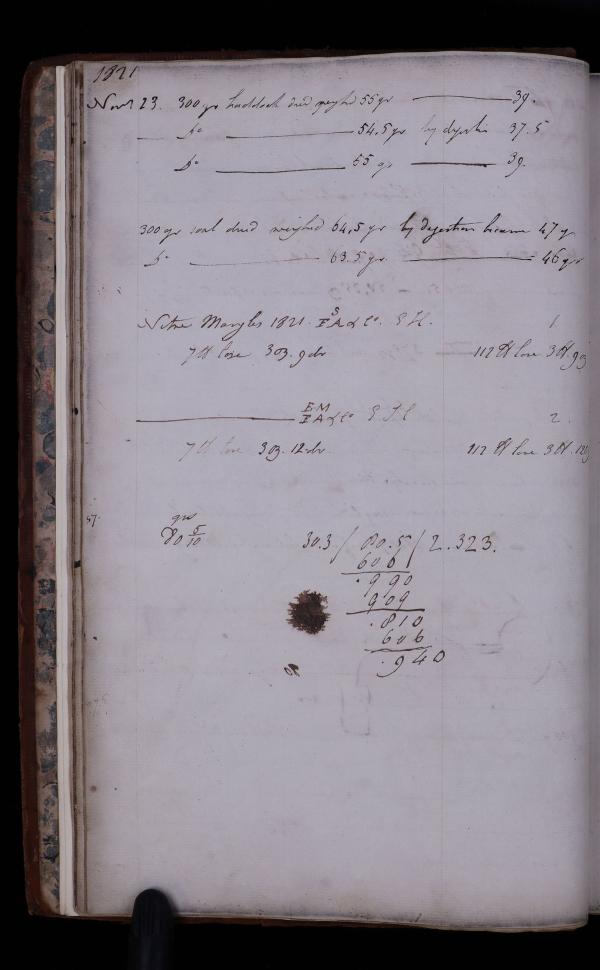 1821
Novr 23. 300 gr haddock dried weighd 55 gr ——— 39.
——— Do ——— 54.5 gr by digestn 37.5
Do ——— 55 gr ——— 39.
300 gr soal dried weighed 64.5 gr by digestion became 47 gr
Do ——— 63.5 gr. ——— 46 gr
Nitre 1821. S EA & Co. 1
7 lb lose 3 oz. 9 dr 112 lb lose 3 lb. 9 oz
——— EM EA & Co 2.
7 lb lose 3 oz. 12 dr 112 lb lose 3 lb. 12
57.
grs
80 5/10 30.3 / 80.5 / 2.323.
606
. 990
909
. 810
606
. 940